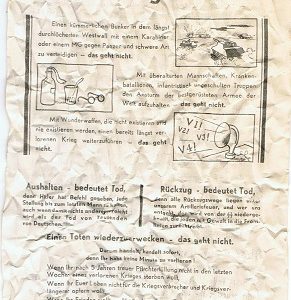 Einen kümmerlichen Bunker in dem längst
durchlöcherten Westwall mit einem Karabiner
oder einem MG gegen Panzer und schwere Art
zu verteidigen - das geht nicht.
Mit überalterten Mannschaften, Kranken-
bataillonen, infanteristisch ungeschulten Truppen
den Ansturm der bestgerüsteten Armee der
Welt aufzuhalten - das geht nicht.
Mit Wunderwaffen, die nicht existieren und
nie existieren werden, einen bereits längst ver-
lorenen Krieg weiterzuführen - das geht
nicht.
V1!
V2!
V3!
V4!
Aushalten - bedeutet Tod,
denn Hitler hat Befehl gegeben, jede
Stellung bis zum letzten Mann zu halten,
auch wenn damit nichts anderes erreicht
wird als der Tod von Tausenden
von Deutschen.
Rückzug - bedeutet Tod,
denn alle Rückzugswege liegen unter
unserem Artilleriefeuer, und wer uns
entgeht, der wird von der
den, die jeden mit Gewalt in die
zurückzutreibt.
Einen Toten wiederzuerwecken - das geht nicht.
Darum handelt, handelt sofort,
denn Ihr habt keine Minute zu verlieren!
Wenn Ihr nach 5 Jahren treuer Pflichterfüllung nicht in den letzten
Wochen eines verlorenen Krieges sterben wollt,
Wenn Ihr Euer Leben nicht für die Kriegsverbrecher und Kriegsver-
längerer opfern wollt,